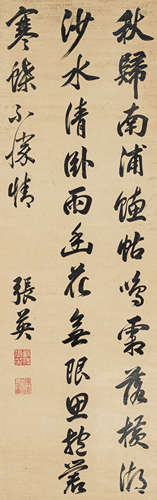 秋歸南浦蟪蛄鳴霜落橫湖
沙水清臥雨幽花無限思抱叢
寒蝶不勝情
張英